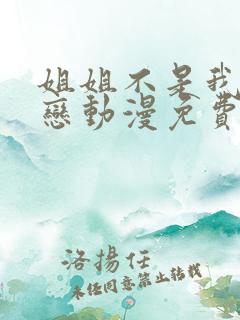 姐姐不是我
戀動漫免費
洛揚任
未任同意禁止转载